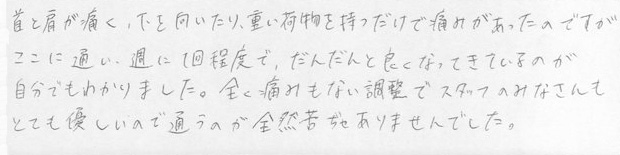 首と肩が痛く、下を向いたり、重い荷物を持つだけで痛みがあったのですが
ここに通い、週に1回程度で、だんだんと良くなってきているのが
自分でもわかりました。全く痛みもない調整でスタッフのみなさんも
とても優しいので通うのが全然苦ぢゃありませんでした。